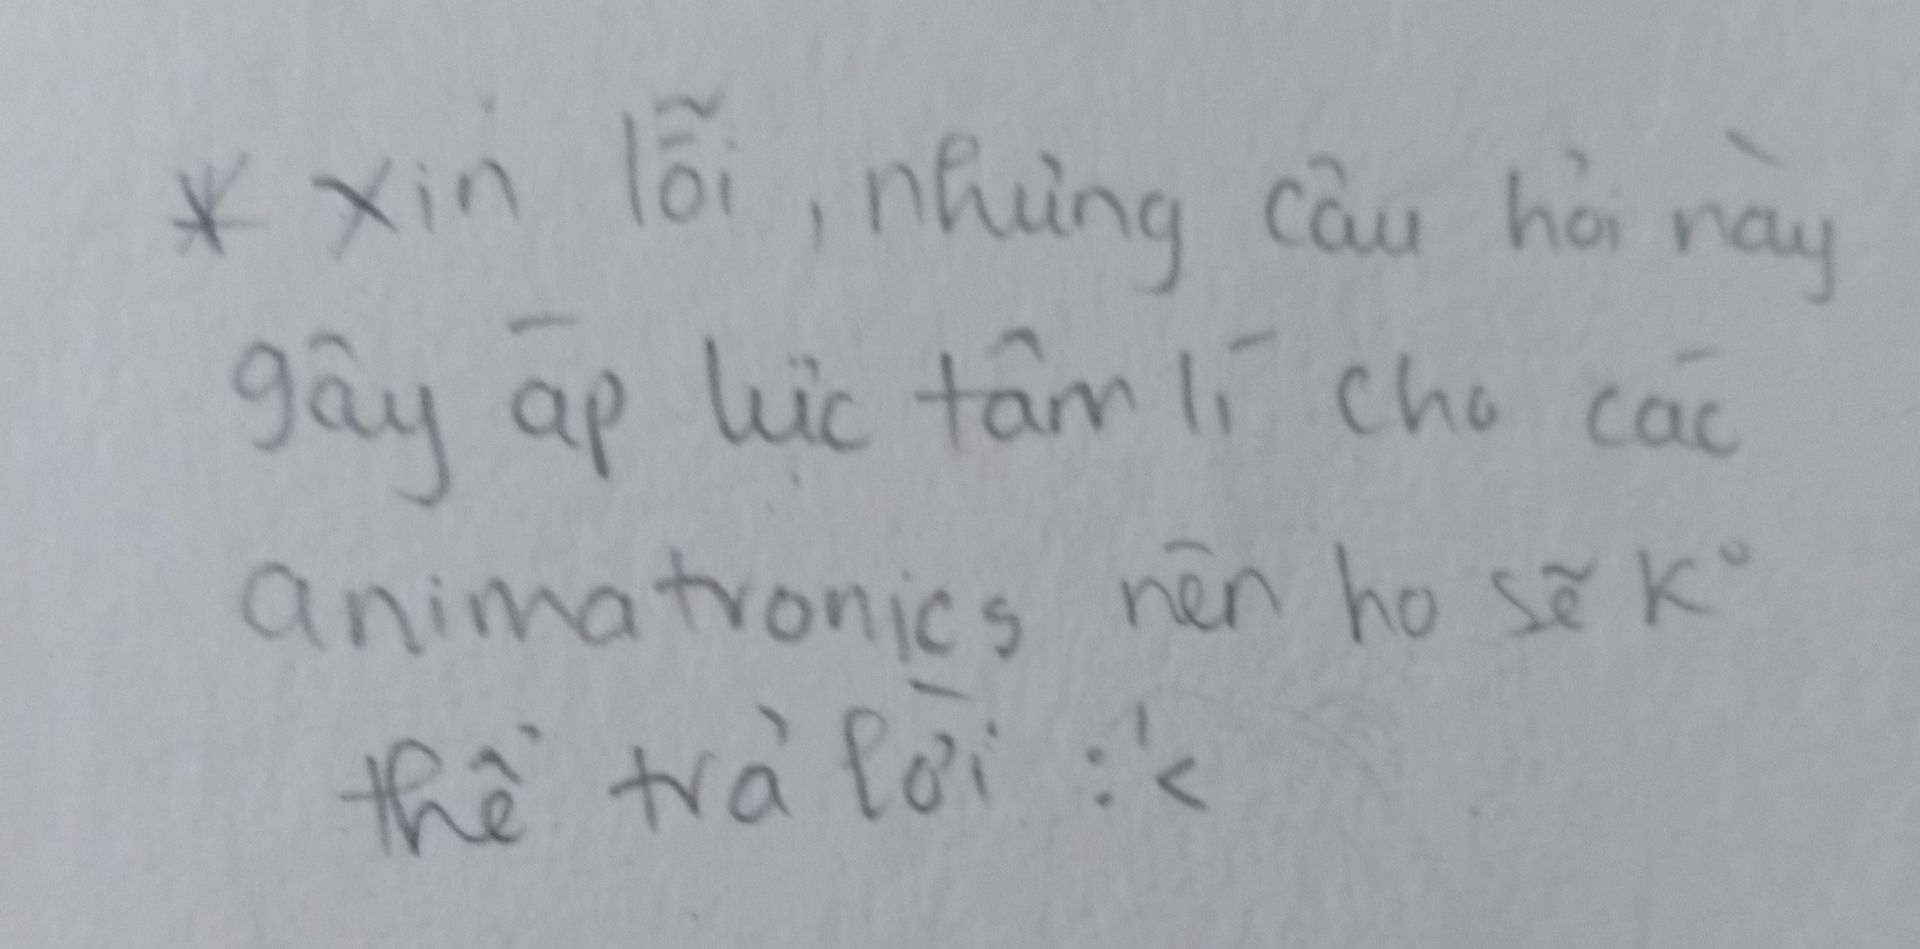 * xin lỗi, những câu hỏi này
gây áp lực tâm lí cho các
animatronics nên họ sẽ k°
thể trả lời :'<